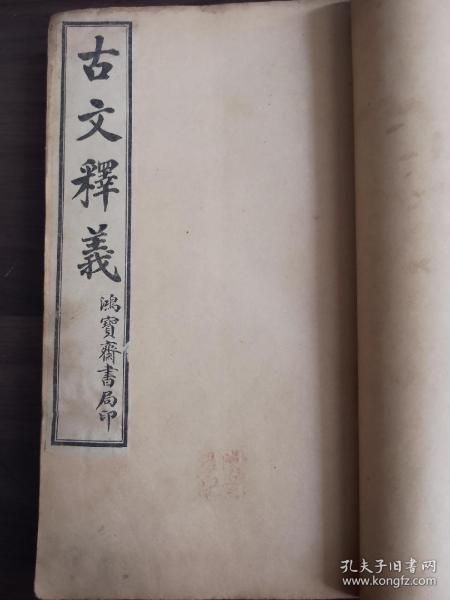 古文釋義
鴻寶齋書局印
孔夫子旧书网
www.kongfz.com